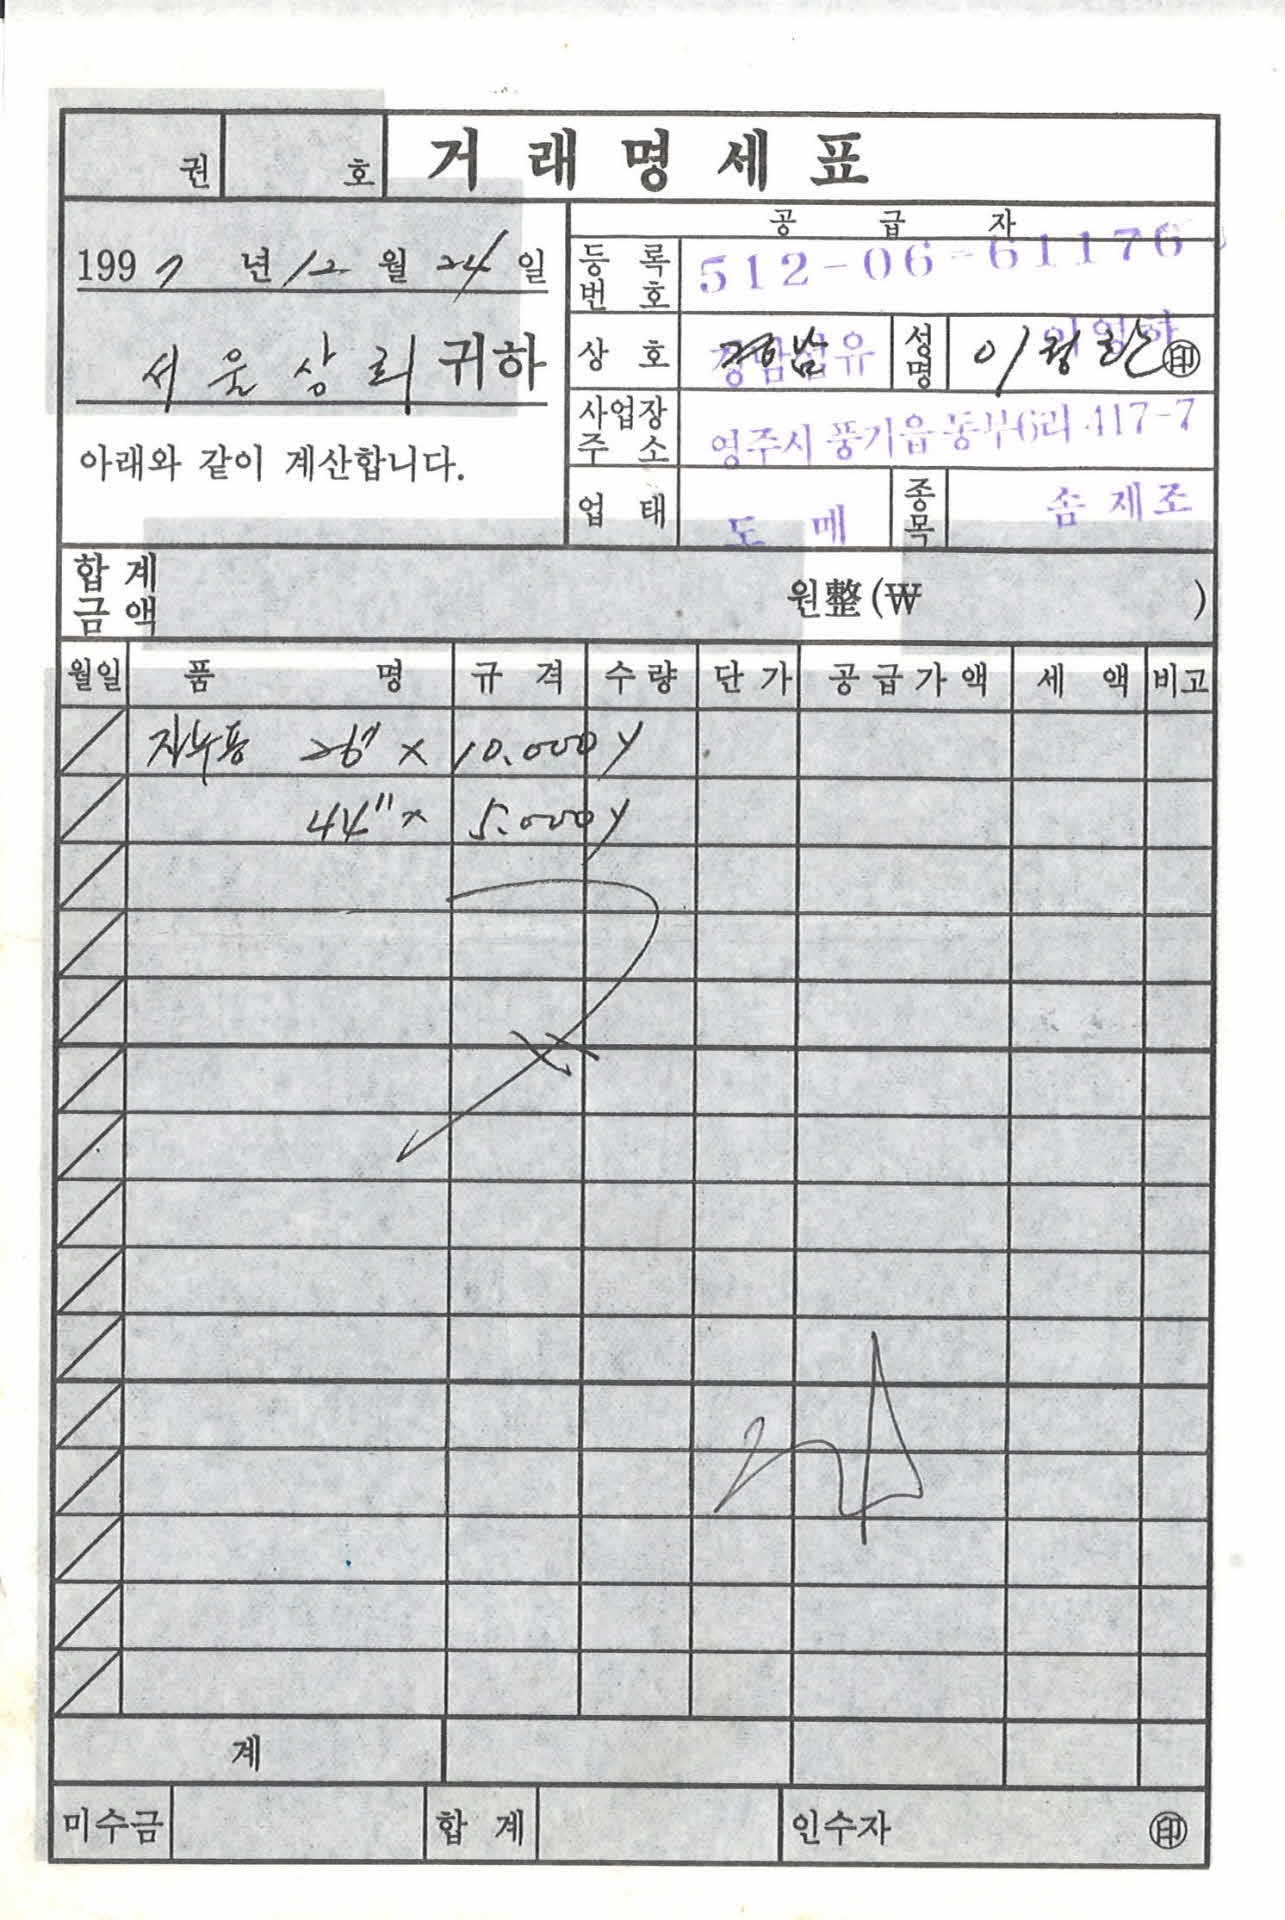 권 호 거래명세표
공급자
1997년 12월 24일
등록번호 512-06-61176
서울상리 귀하
상호 경남섬유 성명 이영하 이정환 ㊞
사업장주소 영주시 풍기읍 동부6리 417-7
아래와 같이 계산합니다.
업태 도매 종목 솜제조
합계금액 원整(₩ )
월일 품명 규격 수량 단가 공급가액 세액 비고
자누용 26" x 10.000y
44" x 5.000y
계
미수금 합계 인수자 ㊞